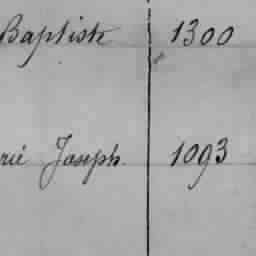 Baptiste 1300
rie Joseph 1093